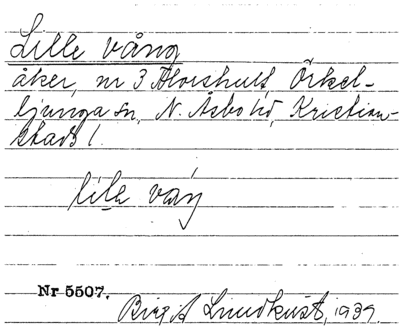 Lille vång
åker, nr 3 Åloeshult, Örkel-
ljunga sn, N. Åsbo hd, Kristian-
stads l.
lila váŋ
Nr 5507.
Birgit Lundkvist, 1939.